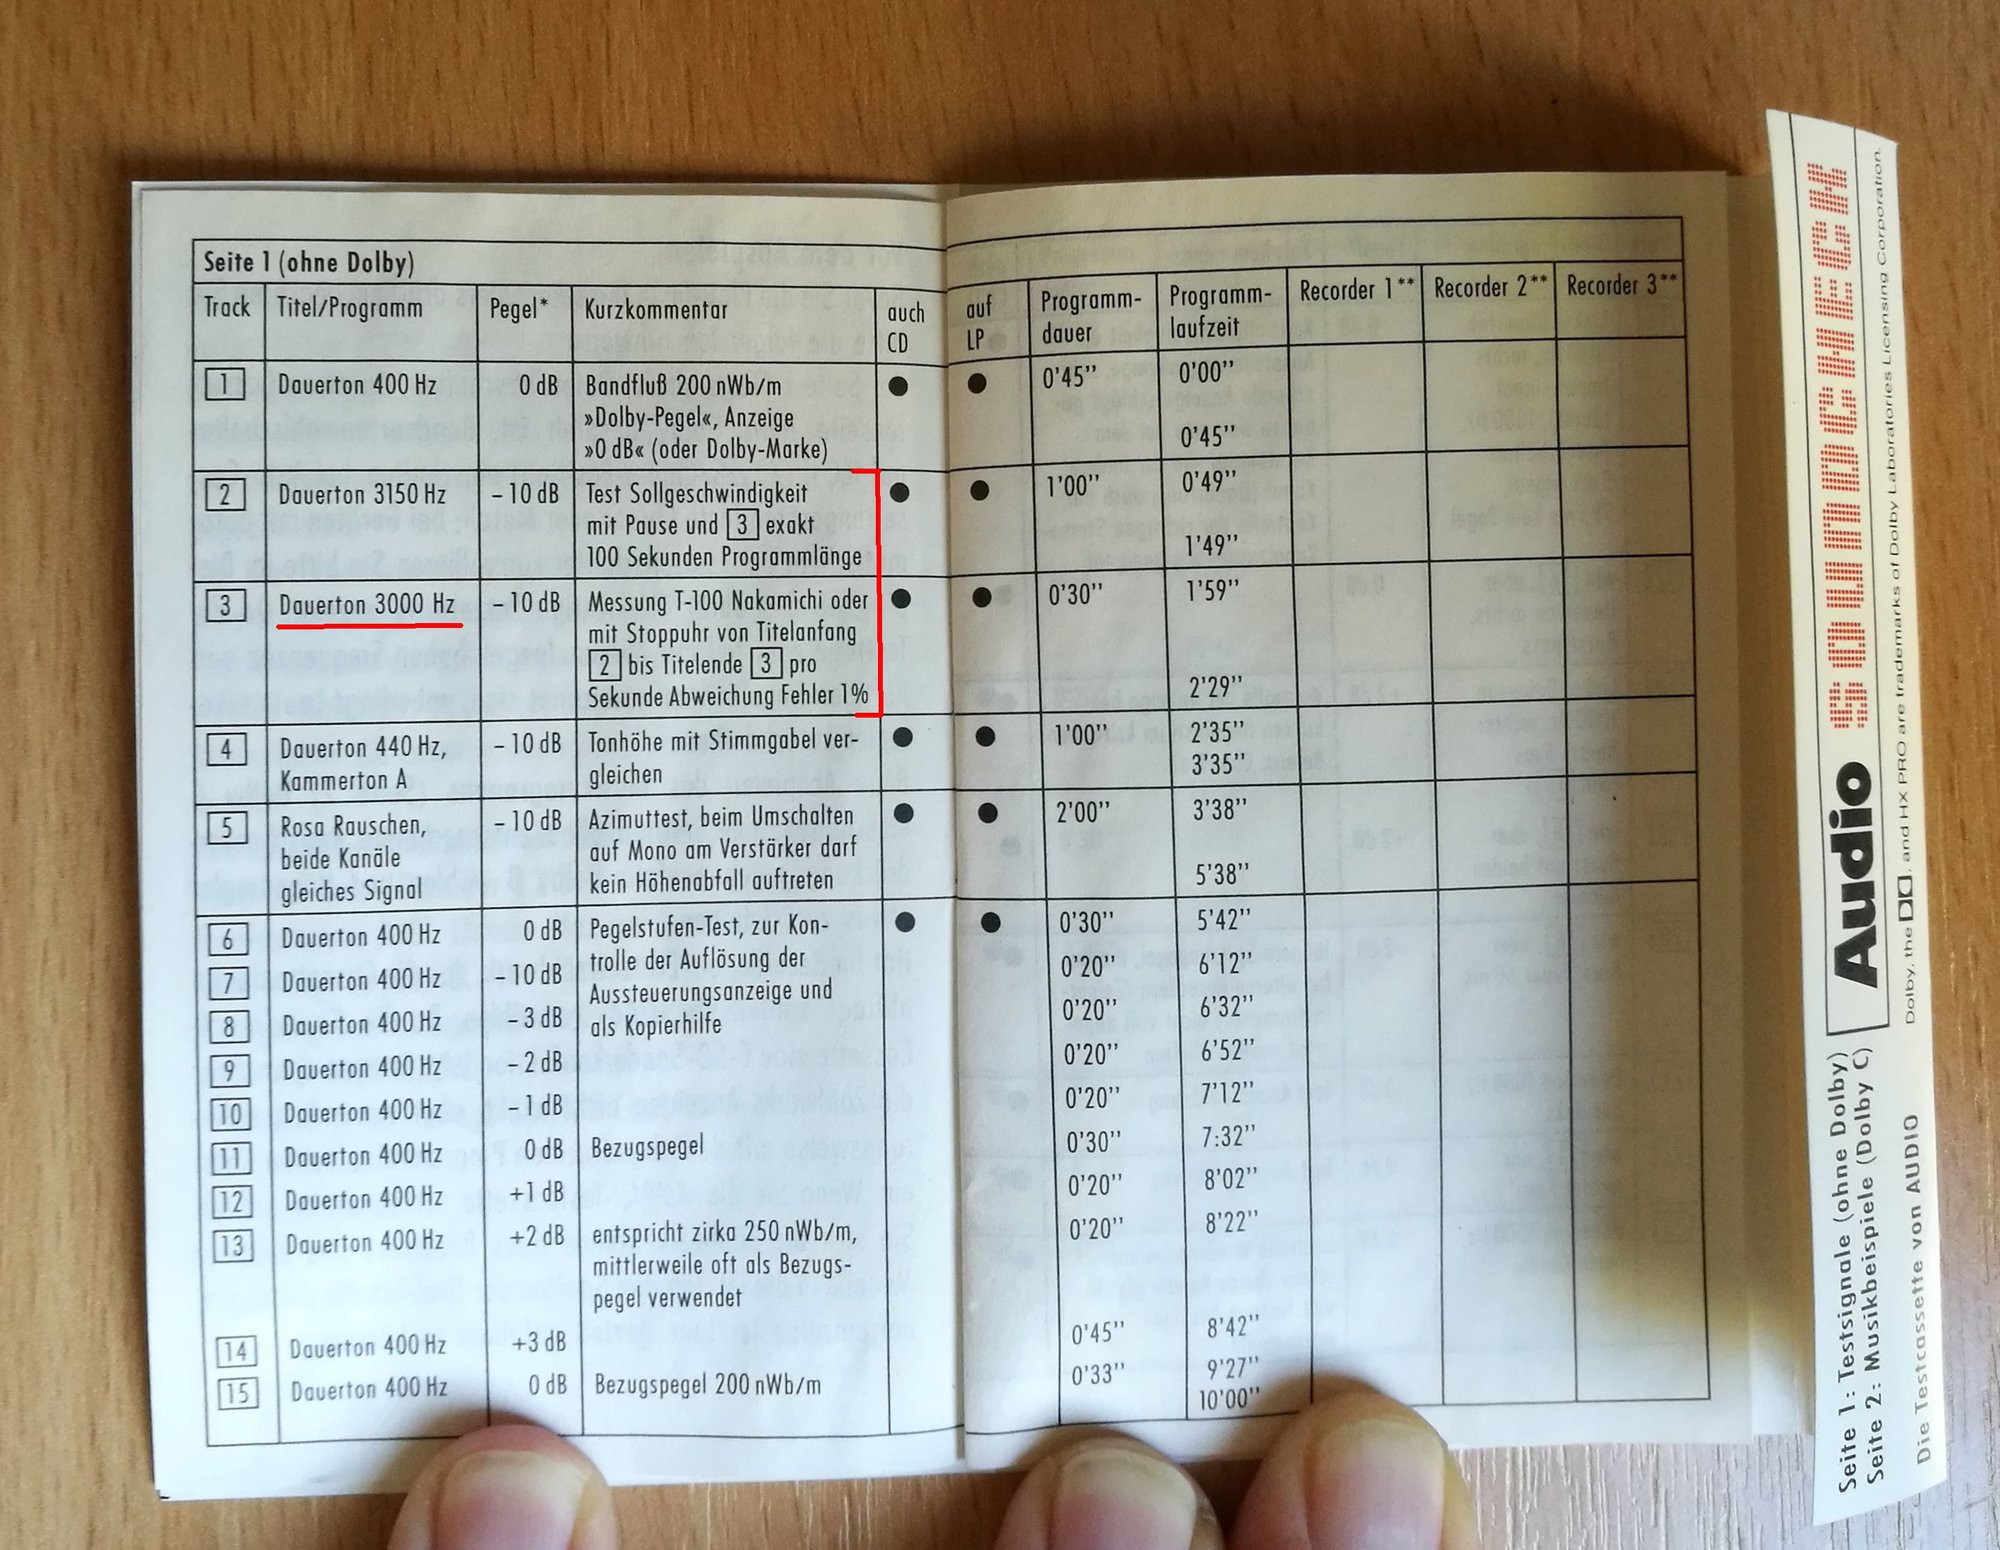 Seite 1 (ohne Dolby)
Track Titel/Programm Pegel* Kurzkommentar auch CD auf LP Programm-dauer Programm-laufzeit Recorder 1** Recorder 2** Recorder 3**
1 Dauerton 400 Hz 0 dB Bandfluß 200 nWb/m ● ● 0'45'' 0'00''
»Dolby-Pegel«, Anzeige
»0 dB« (oder Dolby-Marke) 0'45''
2 Dauerton 3150 Hz – 10 dB Test Sollgeschwindigkeit ● ● 1'00'' 0'49''
mit Pause und 3 exakt
100 Sekunden Programmlänge 1'49''
3 Dauerton 3000 Hz – 10 dB Messung T-100 Nakamichi oder ● ● 0'30'' 1'59''
mit Stoppuhr von Titelanfang
2 bis Titelende 3 pro
Sekunde Abweichung Fehler 1% 2'29''
4 Dauerton 440 Hz, – 10 dB Tonhöhe mit Stimmgabel ver- ● ● 1'00'' 2'35''
Kammerton A gleichen 3'35''
5 Rosa Rauschen, – 10 dB Azimuttest, beim Umschalten ● ● 2'00'' 3'38''
beide Kanäle auf Mono am Verstärker darf
gleiches Signal kein Höhenabfall auftreten 5'38''
6 Dauerton 400 Hz 0 dB Pegelstufen-Test, zur Kon- ● ● 0'30'' 5'42''
7 Dauerton 400 Hz – 10 dB trolle der Auflösung der 0'20'' 6'12''
Aussteuerungsanzeige und
8 Dauerton 400 Hz – 3 dB als Kopierhilfe 0'20'' 6'32''
9 Dauerton 400 Hz – 2 dB 0'20'' 6'52''
10 Dauerton 400 Hz – 1 dB 0'20'' 7'12''
11 Dauerton 400 Hz 0 dB Bezugspegel 0'30'' 7:32''
12 Dauerton 400 Hz +1 dB 0'20'' 8'02''
13 Dauerton 400 Hz +2 dB entspricht zirka 250 nWb/m, 0'20'' 8'22''
mittlerweile oft als Bezugs-
pegel verwendet
14 Dauerton 400 Hz +3 dB 0'45'' 8'42''
15 Dauerton 400 Hz 0 dB Bezugspegel 200 nWb/m 0'33'' 9'27''
10'00''
Audio SOUNDCHECK
Dolby, the DD, and HX PRO are trademarks of Dolby Laboratories Licensing Corporation.
Seite 1: Testsignale (ohne Dolby)
Seite 2: Musikbeispiele (Dolby C)
Die Testcassette von AUDIO